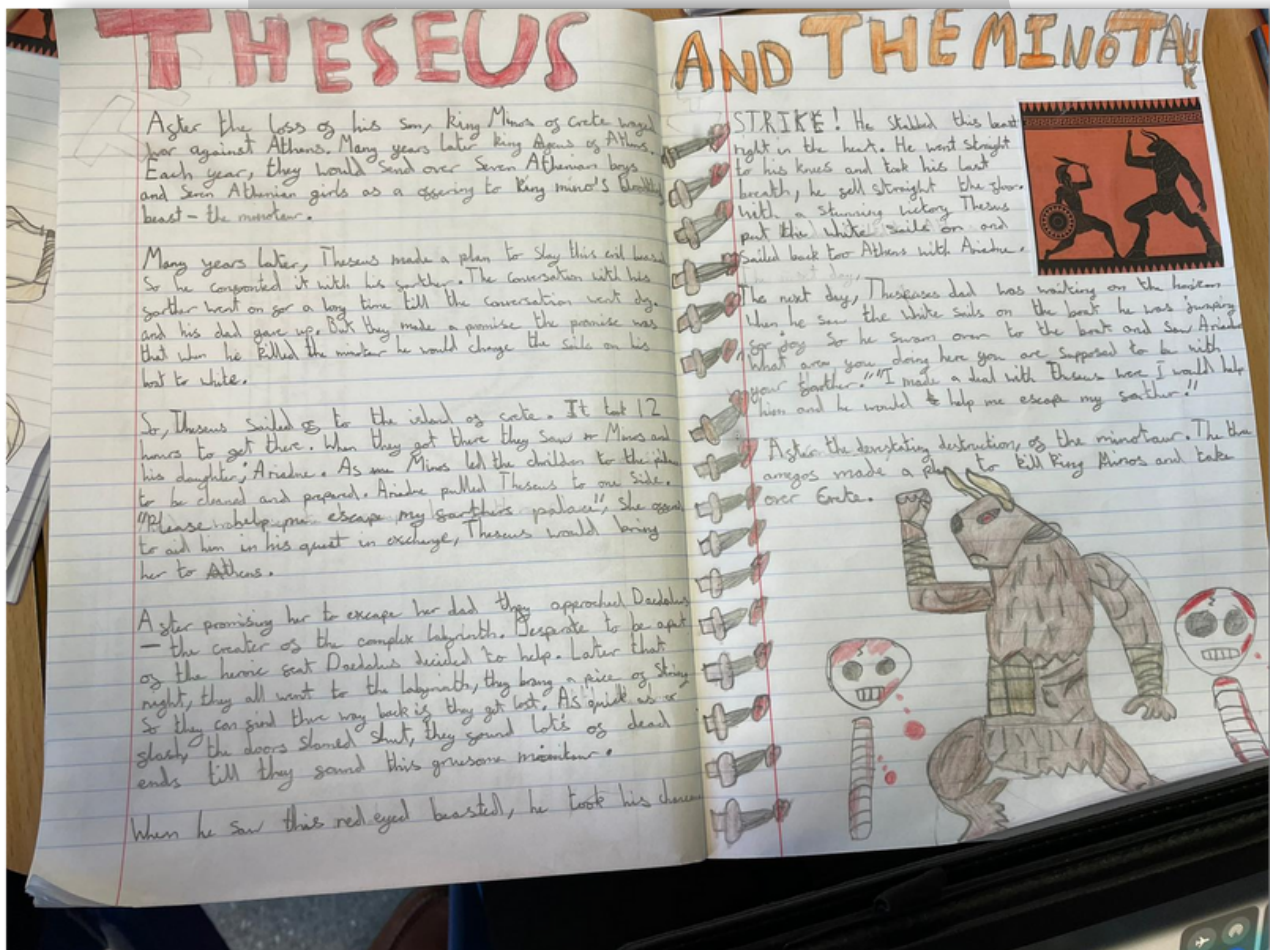 THESEUS
After the loss of his son, king Minos of Crete waged
war against Athens. Many years later king Ageus of Athens.
Each year, they would send over Seven Athenian boys
and Seven Athenian girls as a offering to king mino's
beast - the minotaur.
Many years later, Theseus made a plan to slay this evil beast
So he confronted it with his farther. The conversation with his
farther went on for a long time till the conversation went dry.
and his dad gave up. But they made a promise the promise was
that when he killed the minotaur he would change the sails on his
boat to white.
So, Theseus Sailed off to the island of crete. It took 12
hours to get there. When they got there they saw Minos and
his daughter; Ariadne. As Minos let the children to the
to be cleaned and prepared. Ariadne pulled Theseus to one side.
"Please help me escape my farthers palace", She offered
to aid him in his quest in exchange, Theseus would bring
her to Athens.
After promising her to escape her dad they approached Daedalus
— the creater of the complex labyrinth. Desperate to be apart
of the heroic feat Daedalus decided to help. Later that
night, they all went to the labyrinth, they bring a piece of string
So they can find there way back if they get lost. As quick as a
flash, the doors slamed shut, they found lots of dead
ends till they found this gruesome minotaur.
When he saw this red eyed beasted, he took his chance
AND THE MINOTAUR
STRIKE! He stabbed this beast
right in the heart. He went straight
to his knees and took his last
breath, he fell straight the floor.
With a stunning victory Theseus
put the white sails on and
Sailed back too Athens with Ariadne.
The next day, dad was waiting on the horizon
When he saw the white sails on the boat he was jumping
for joy. So he swam over to the boat and saw Ariadne
"What are you doing here you are supposed to be with
your farther." "I made a deal with Theseus were I would help
him and he would help me escape my farther!"
After the devastating destruction, of the minotaur. The three
amegos made a plan to kill king Minos and take
over Crete.